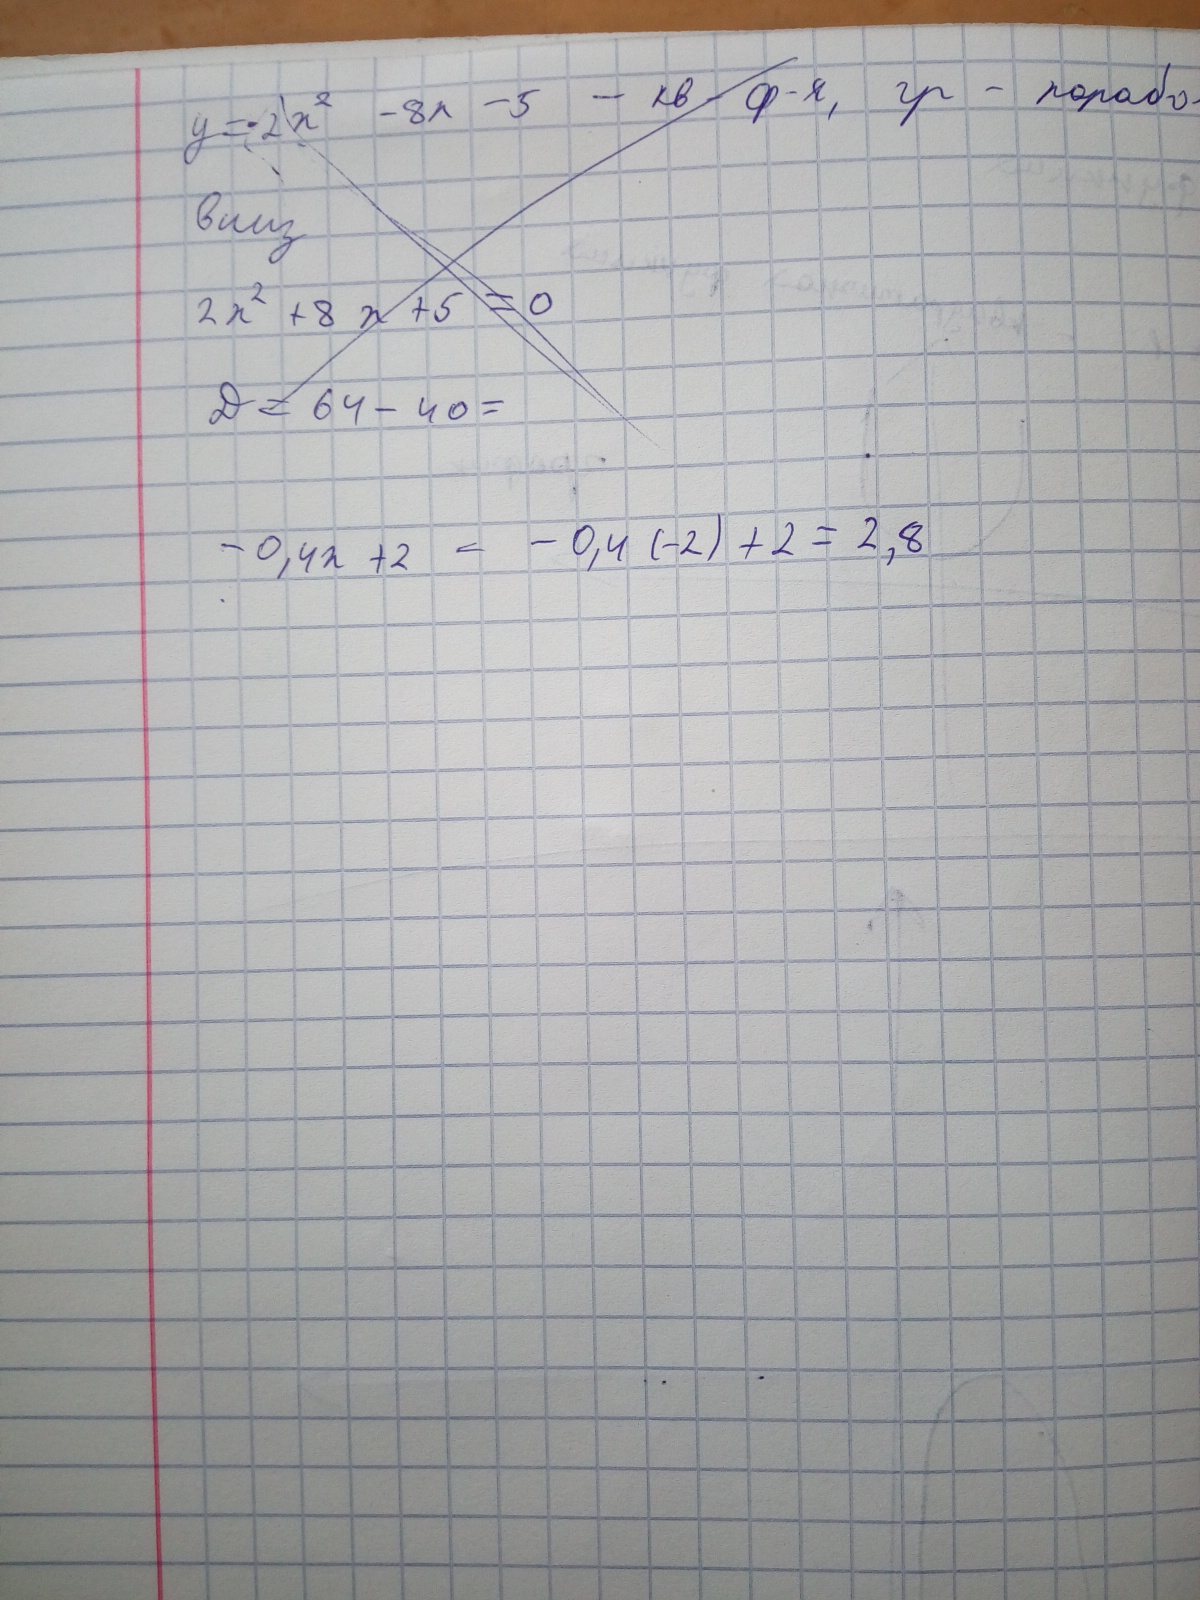 y = -2x² -8x -5 - кв ф-я, гр - парабо
вниз
2x² +8x +5 = 0
D = 64 - 40 =
-0,4x +2 = -0,4 (-2) +2 = 2,8